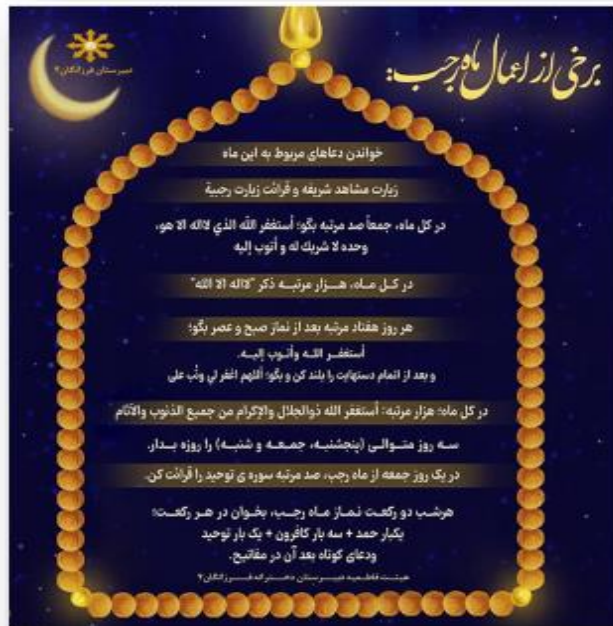 برخی از اعمال ماه رجب:
دبیرستان فرزانگان ۲
خواندن دعاهای مربوط به این ماه
زیارت مشاهد شریفه و قرائت زیارت رجبیة
در کل ماه، جمعاً صد مرتبه بگو؛ أستغفر الله الذي لااله الا هو،
وحده لا شريك له و أتوب إليه
در کـل مـاه، هـــزار مرتبــه ذکر "لااله الا الله"
هر روز هفتاد مرتبه بعد از نماز صبح و عصر بگو؛
أستغفــر اللــه وأتــوب إليــه.
و بعد از اتمام دستهایت را بلند کن و بگو؛ أللهم اغفر لي وتُب علی
در کل ماه؛ هزار مرتبه: أستغفر الله ذوالجلال والإكرام من جميع الذنوب والآثام
سـه روز متـوالـی (پنجشنبـه، جمعـه و شنبـه) را روزه بـدار.
در یک روز جمعه از ماه رجب، صد مرتبه سوره ی توحید را قرائت کن.
هرشـب دو رکعـت نمـاز مـاه رجـب، بخـوان در هـر رکعـت؛
یکبار حمد + سه بار کافرون + یک بار توحید
ودعای کوتاه بعد آن در مفاتیح.
هیئـت فاطمیـه دبیـرستان دختـرانه فـرزانگان ۲